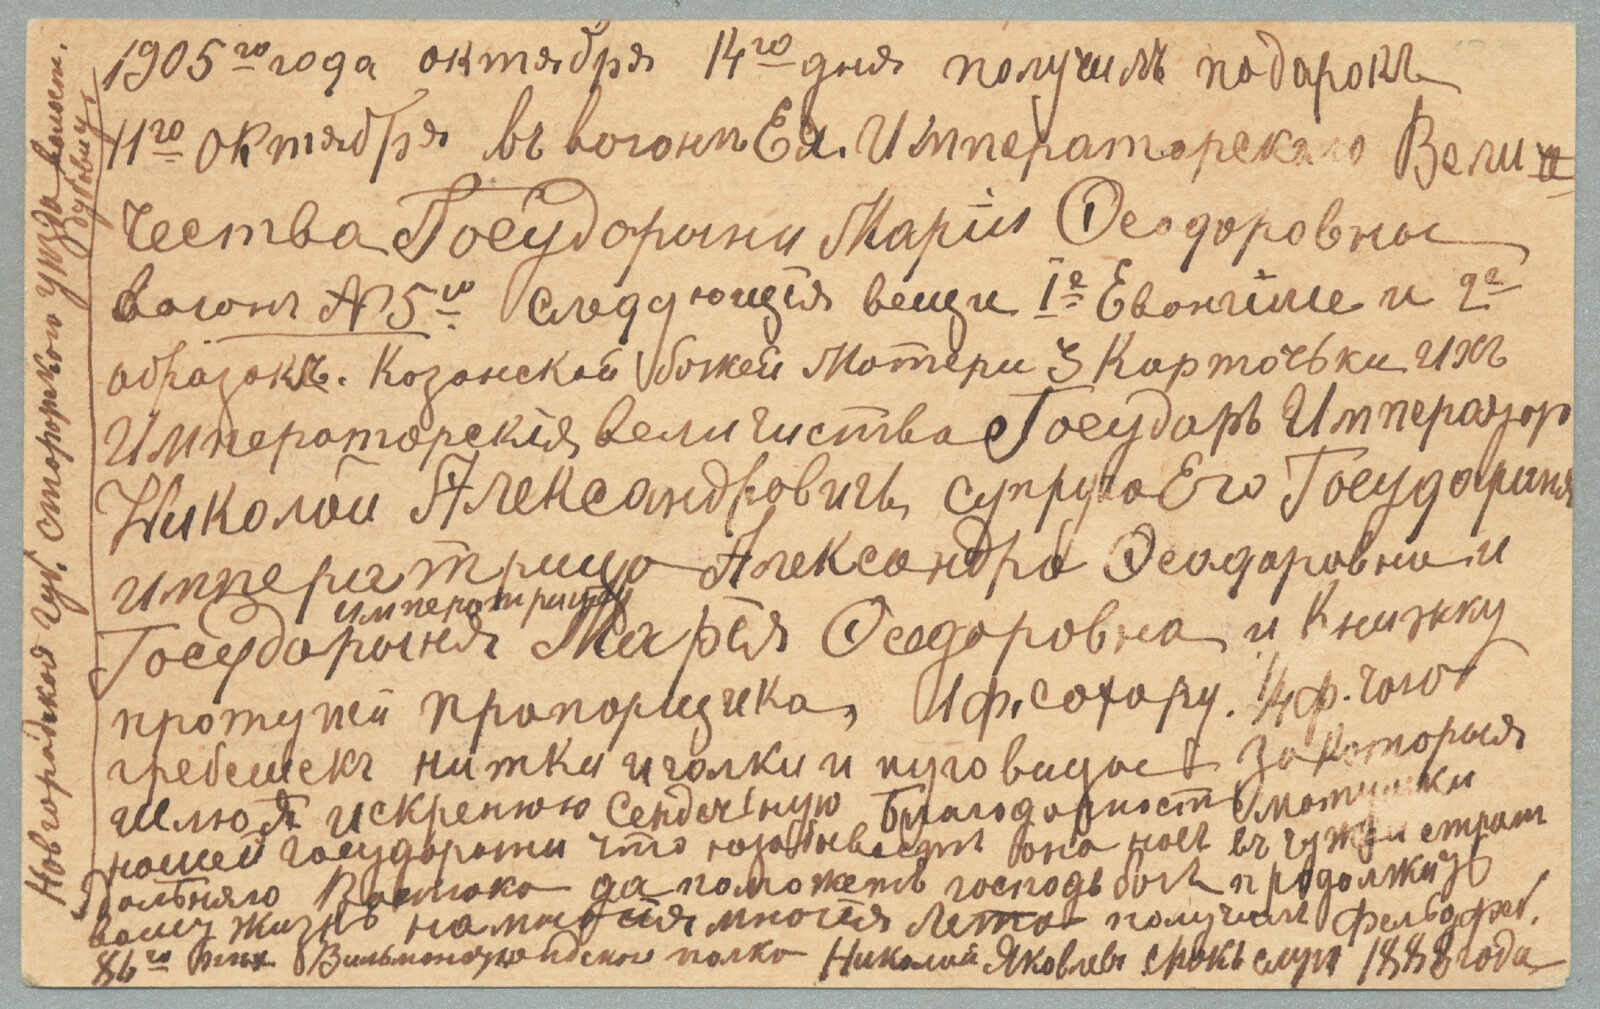 1905 го года октября 14 го дня получилъ подарокъ
11 го октября въ вогонъ Ея. Императорскаго Вели
чества Государыни Маріи Ѳеодоровны
вагонъ № 5 го следдующія вещи 1 е Евонгиліе и 2 е
образокъ. Козонской божей Мотери 3 Карточьки ихъ
Императорскія величиства Государь Император
Николой Александровичъ, супруга Его Государиня
императрица Александра Ѳеодоровна и
императрица
Государыня Марія Ѳеодоровна и Книжку
протупей пропорщика, 1 ф. сахару. 1/4 ф. чаю
гребешекъ нитки иголки и пуговицы За которыя
шлю Я искренюю Сердечную благодарность матушки
нашей государыни что она насъ въ чужой стране
Дольняго Востока да поможетъ господь богъ продолжить
вашу жизнь на многія многія лета получилъ фельдфеб.
86 го пех Вильмонстрандскаго полка Николай Яковлевъ срокъ служ 1888 года
Новгородской губ. старорускаго уезда волост.